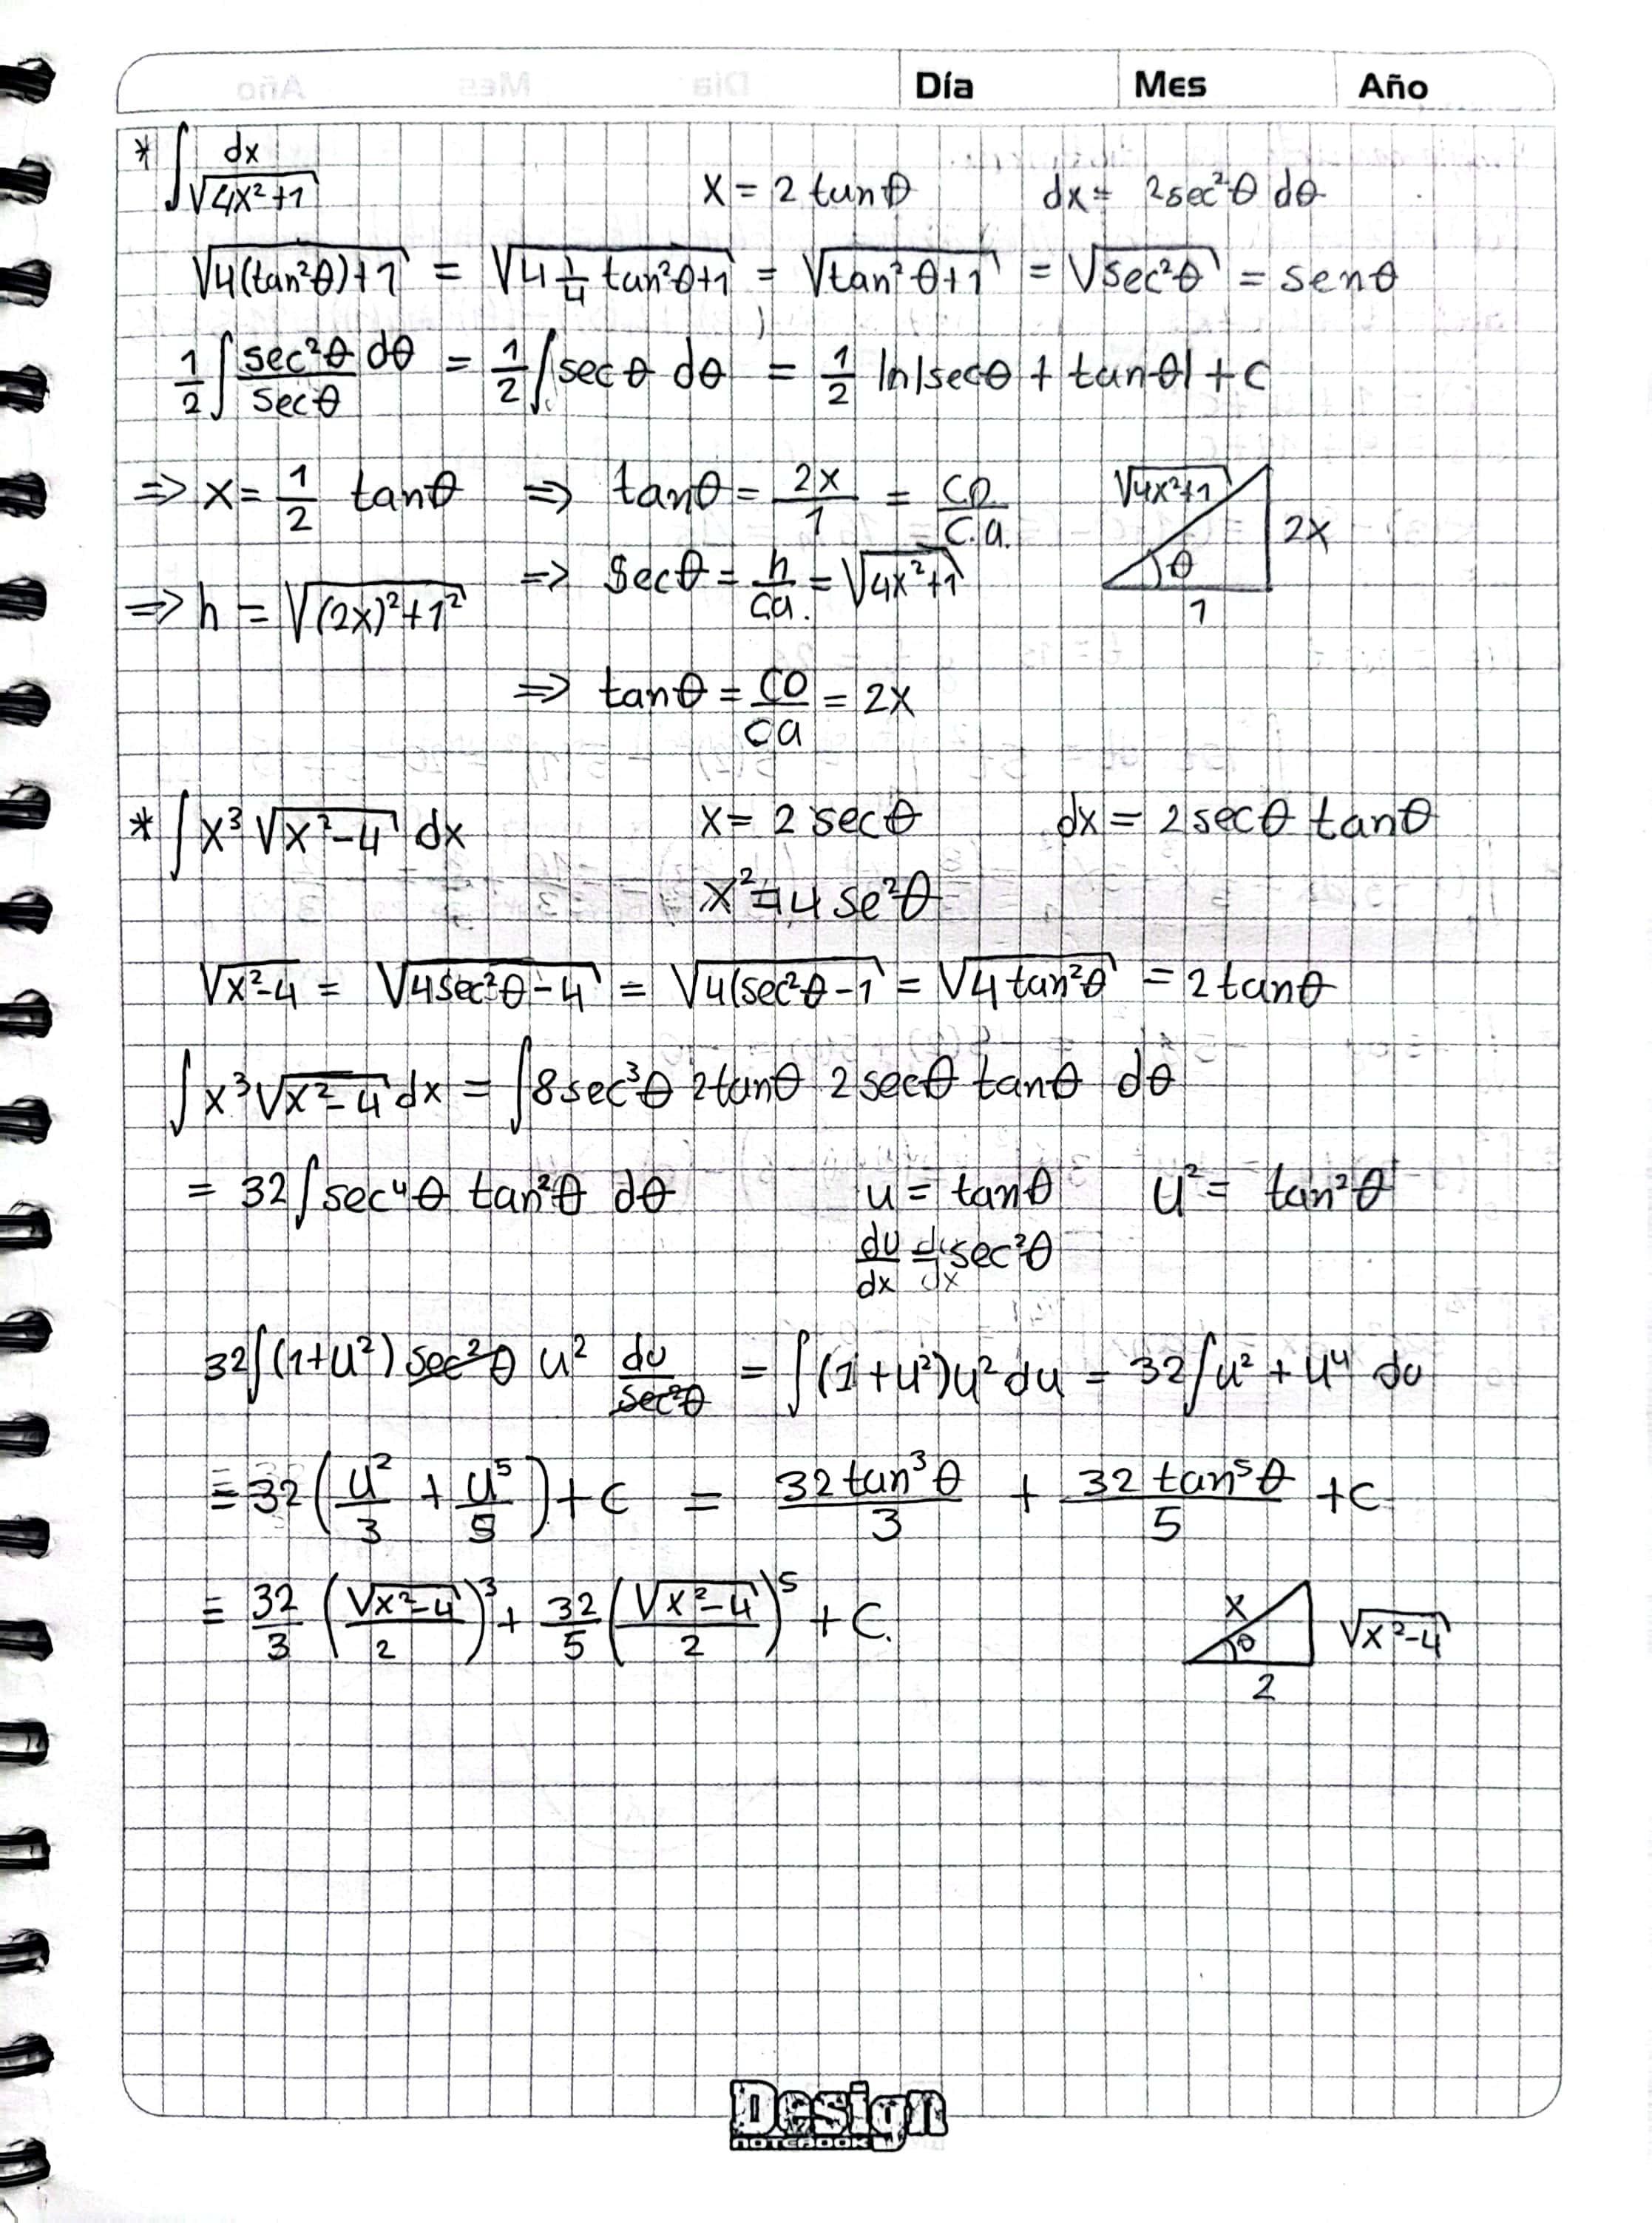 Día Mes Año
* ∫ dx/√(4x²+1) x = 2 tanθ dx = 2sec²θ dθ
√(4(tan²θ)+1) = √(4 1/4 tan²θ+1) = √(tan²θ+1) = √(sec²θ) = senθ
1/2 ∫ sec²θ/secθ dθ = 1/2 ∫ secθ dθ = 1/2 ln|secθ + tanθ| + c
⇒ x = 1/2 tanθ ⇒ tanθ = 2x/1 = CO/C.a. √(4x²+1) 2x θ 1
⇒ h = √((2x)²+1²) ⇒ secθ = h/ca. = √(4x²+1)
⇒ tanθ = CO/ca = 2x
* ∫ x³ √(x²-4) dx x = 2 secθ dx = 2 secθ tanθ
x² = 4 se²θ
√(x²-4) = √(4sec²θ-4) = √(4(sec²θ-1) = √(4 tan²θ) = 2 tanθ
∫ x³ √(x²-4) dx = ∫ 8 sec³θ 2tanθ 2 secθ tanθ dθ
= 32 ∫ sec⁴θ tan²θ dθ u = tanθ u² = tan²θ
du/dx = sec²θ
32 ∫ (1+u²) sec²θ u² du/sec²θ = ∫ (1+u²)u² du = 32 ∫ u² + u⁴ du
= 32 (u²/3 + u⁵/5) + c = 32 tan³θ/3 + 32 tan⁵θ/5 + c
= 32/3 (√(x²-4)/2)³ + 32/5 (√(x²-4)/2)⁵ + C. x θ √(x²-4) 2
Design
NOTEBOOK